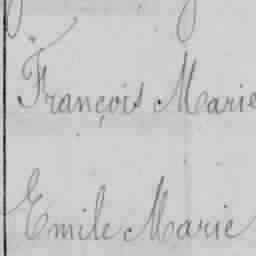 François Marie
Emile Marie